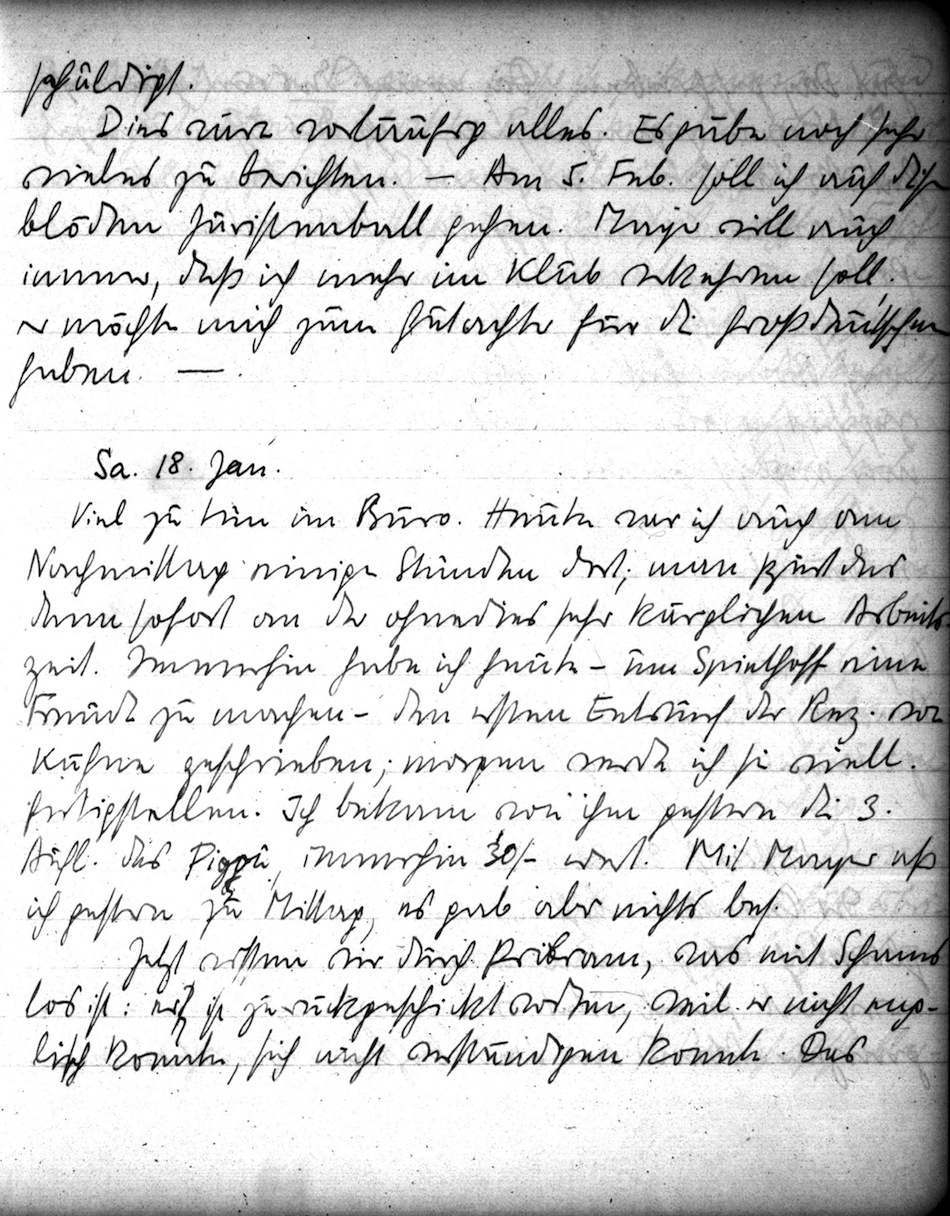 schuldigt.
Dies wäre vorläufig alles. Es gäbe noch sehr
vieles zu berichten. — Am 5. Feb. soll ich auf diesen
blöden Juristenball gehen. Mayer will auch
immer, daß ich mehr im Klub verkehren soll,
er möchte mich zum Gutachter für die Großdeutschen
haben. —.
Sa. 18. Jan.
Viel zu tun im Büro. Heute war ich auch am
Nachmittag einige Stunden dort; man spürt das
dann sofort an der ohnedies sehr kärglichen Arbeits-
zeit. Immerhin habe ich heute – um Spiethoff eine
Freude zu machen – den ersten Entwurf der Rez. von
Kühne geschrieben; morgen werde ich sie viell.
fertigstellen. Ich bekam von ihm gestern die 3.
Aufl. des Pigou, immerhin 30/- wert. Mit Mayer aß
ich gestern zu Mittag, es gab aber nichts bes.
Jetzt wissen wir durch Pribram, was mit Schams
los ist: er ist zurückgeschickt worden, weil er nicht eng-
lisch konnte, sich nicht verständigen konnte. Das